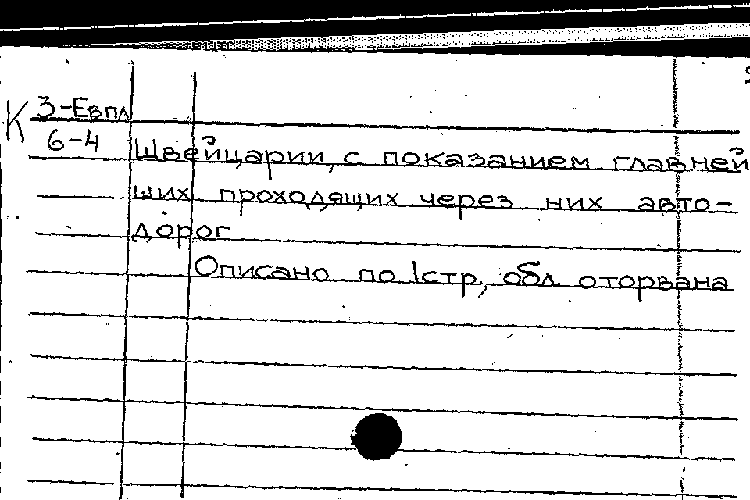 К 3-Евпл
6-4
Швейцарии, с показанием главней
ших проходящих через них авто-
дорог
Описано по 1стр, обл оторвана